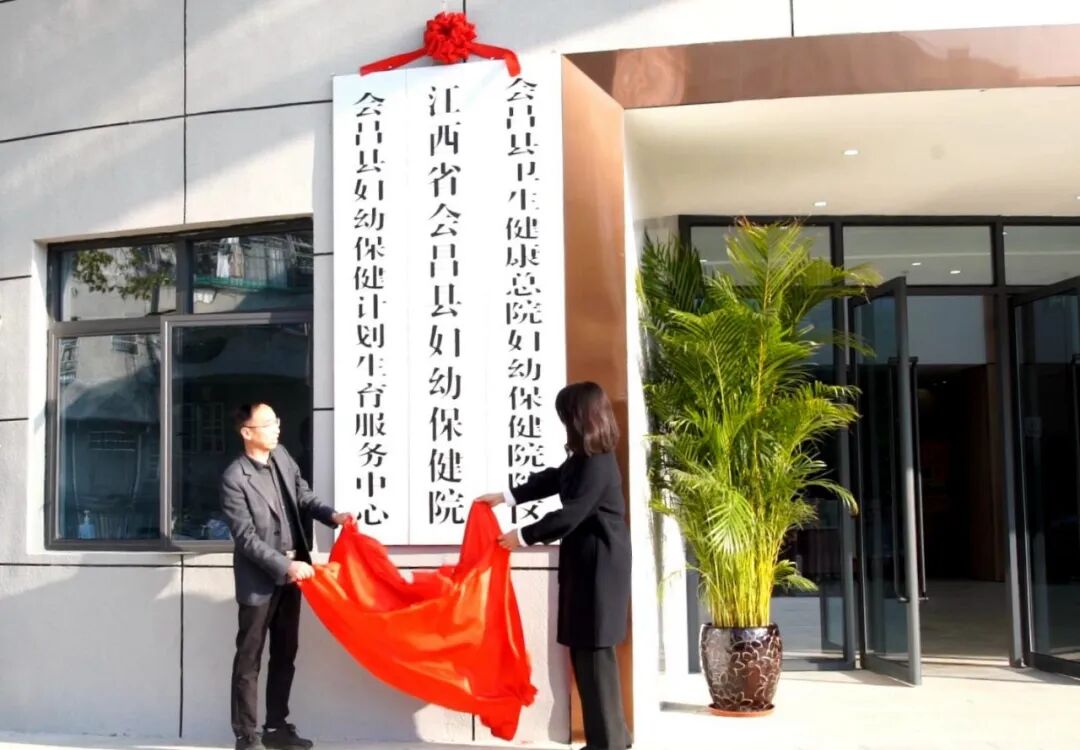 会昌县卫生健康总院妇幼保健院院区
江西省会昌县妇幼保健院
会昌县妇幼保健计划生育服务中心